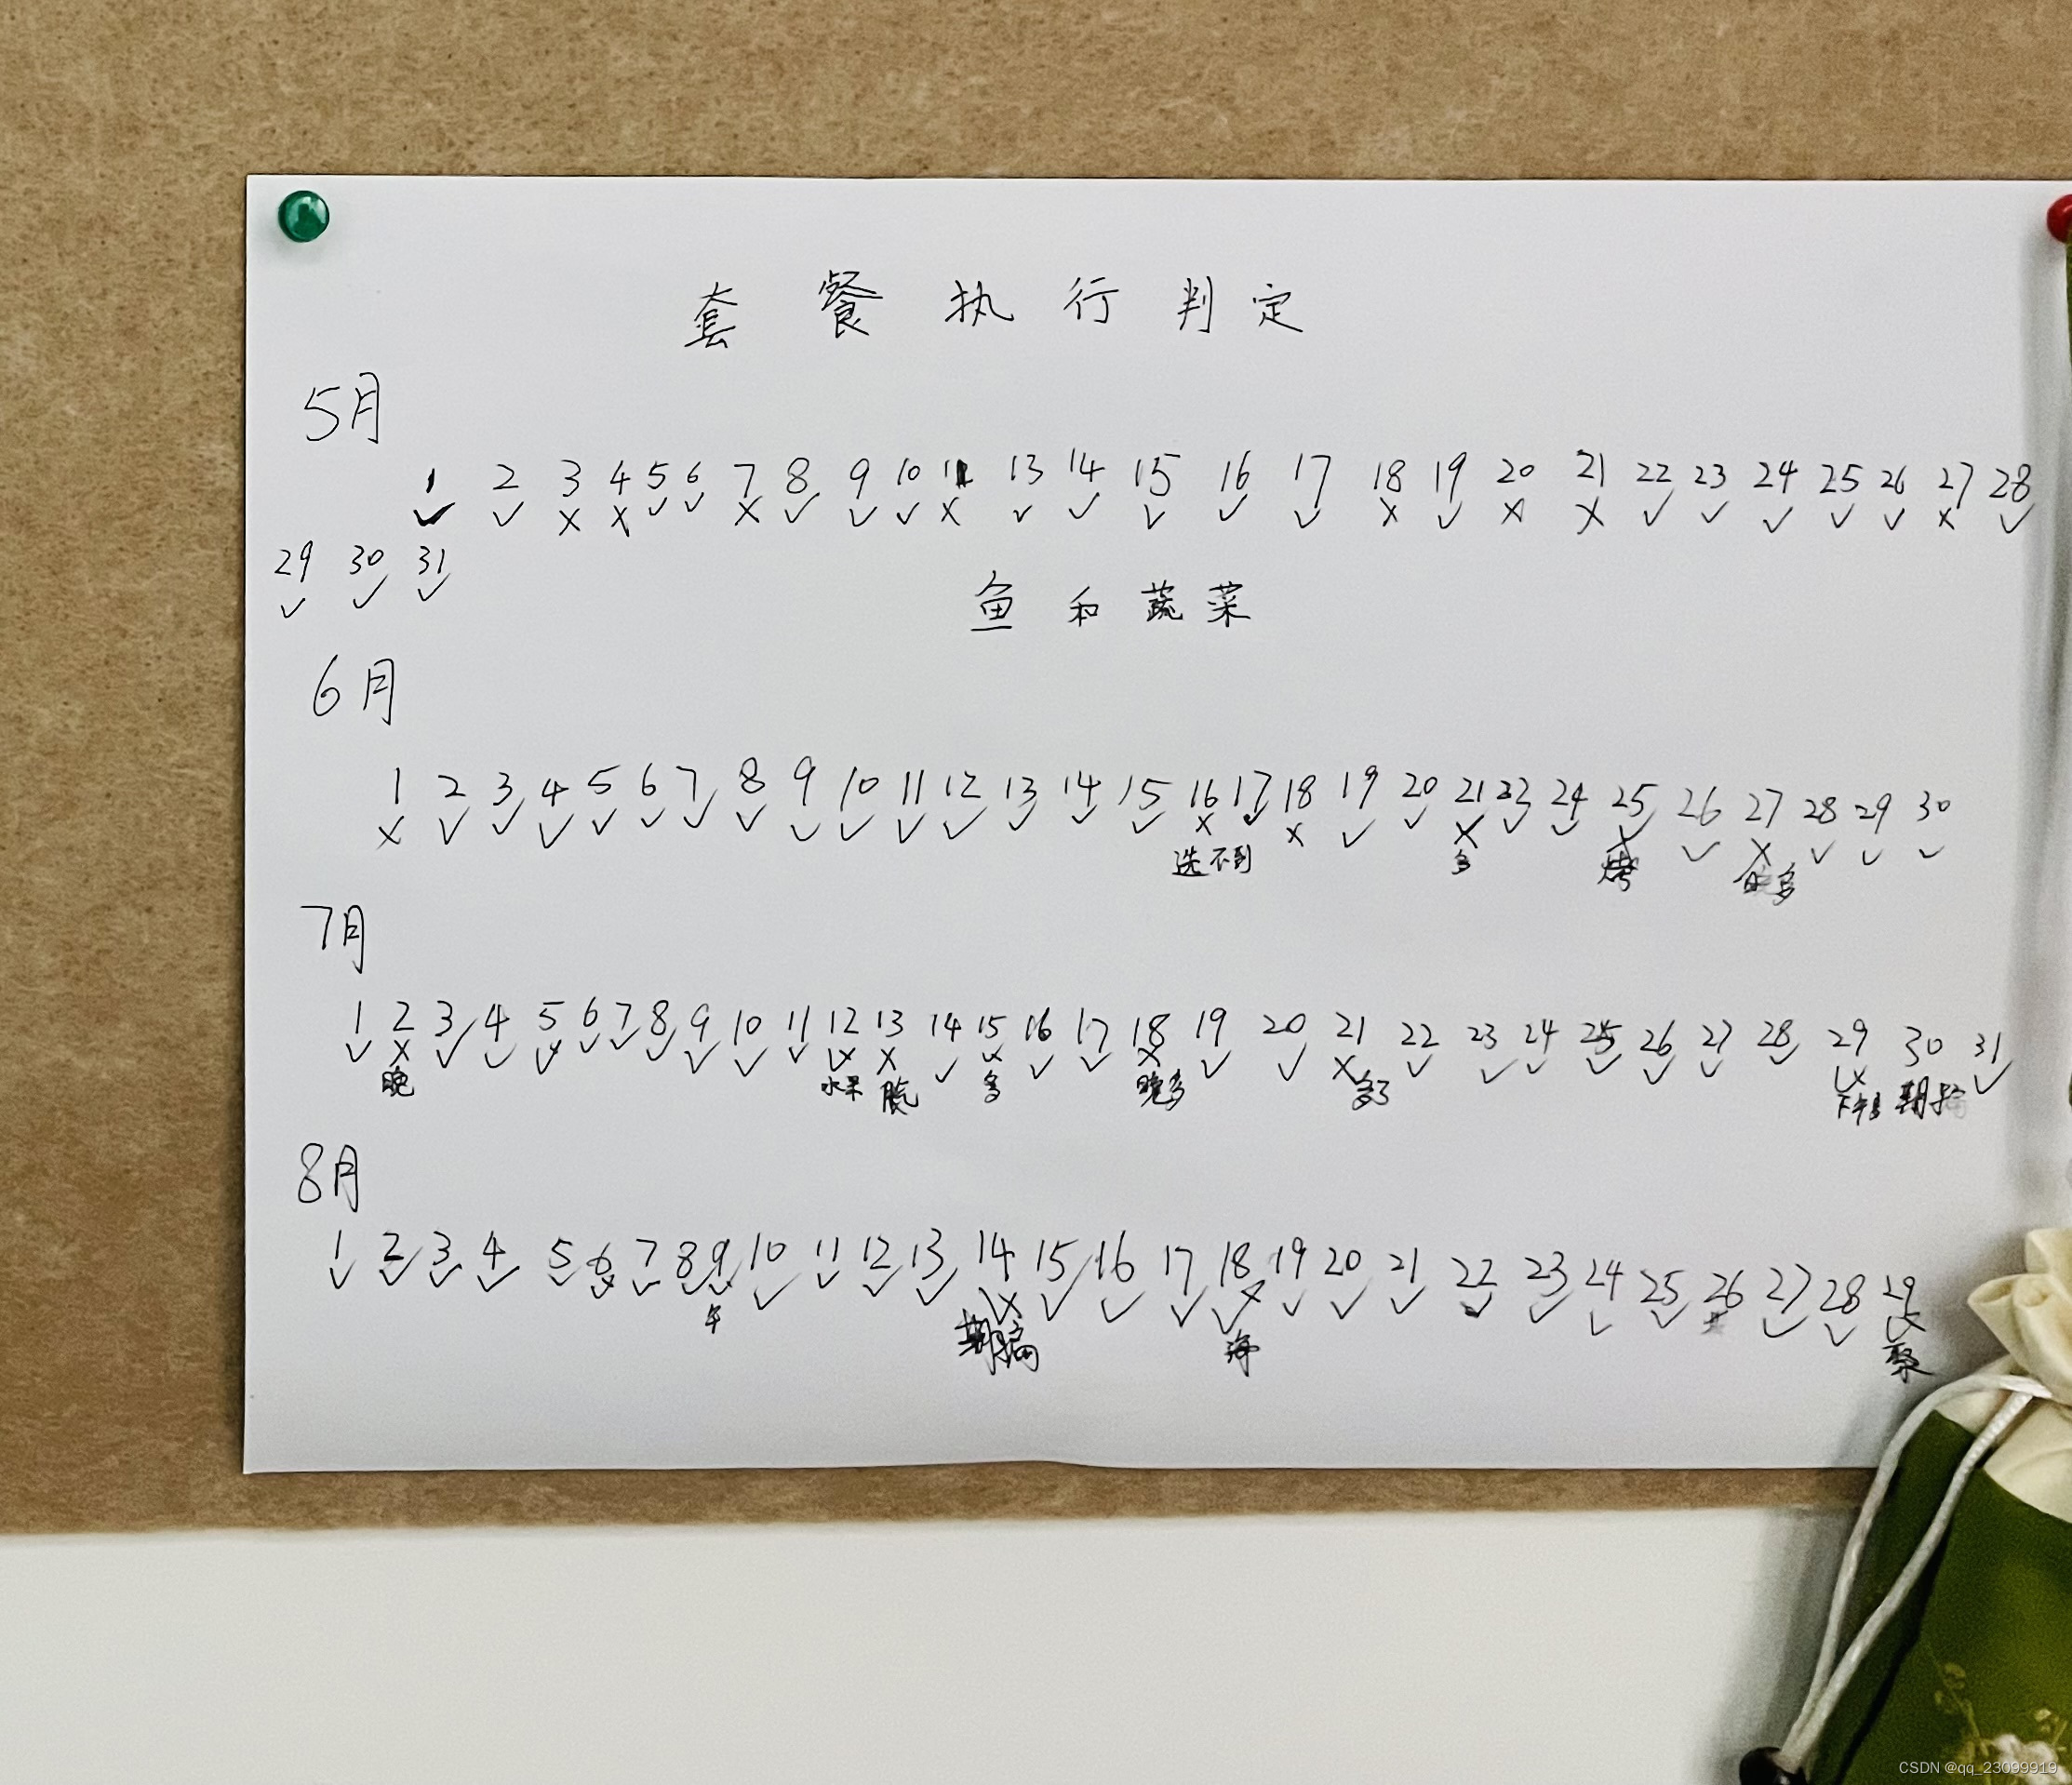 套餐执行判定
5月
1 2 3 4 5 6 7 8 9 10 11 13 14 15 16 17 18 19 20 21 22 23 24 25 26 27 28
✓ ✓ × × ✓ ✓ × ✓ ✓ ✓ × ✓ ✓ ✓ ✓ ✓ × ✓ × × ✓ ✓ ✓ ✓ ✓ × ✓
29 30 31
✓ ✓ ✓
鱼和蔬菜
6月
1 2 3 4 5 6 7 8 9 10 11 12 13 14 15 16 17 18 19 20 21 23 24 25 26 27 28 29 30
× ✓ ✓ ✓ ✓ ✓ ✓ ✓ ✓ ✓ ✓ ✓ ✓ ✓ ✓ × ✓ × ✓ ✓ × ✓ ✓ × ✓ × ✓ ✓ ✓
选不到 多 烤 多
7月
1 2 3 4 5 6 7 8 9 10 11 12 13 14 15 16 17 18 19 20 21 22 23 24 25 26 27 28 29 30 31
✓ × ✓ ✓ ✓ ✓ ✓ ✓ ✓ ✓ ✓ ✓× × ✓ × ✓ ✓ × ✓ ✓ × ✓ ✓ ✓ ✓ ✓ ✓ ✓ ✓× ✓
晚 水果 多 晚多 多了
8月
1 2 3 4 5 6 7 8 9 10 11 12 13 14 15 16 17 18 19 20 21 22 23 24 25 26 27 28 29
午 海 聚
CSDN @qq_23099919